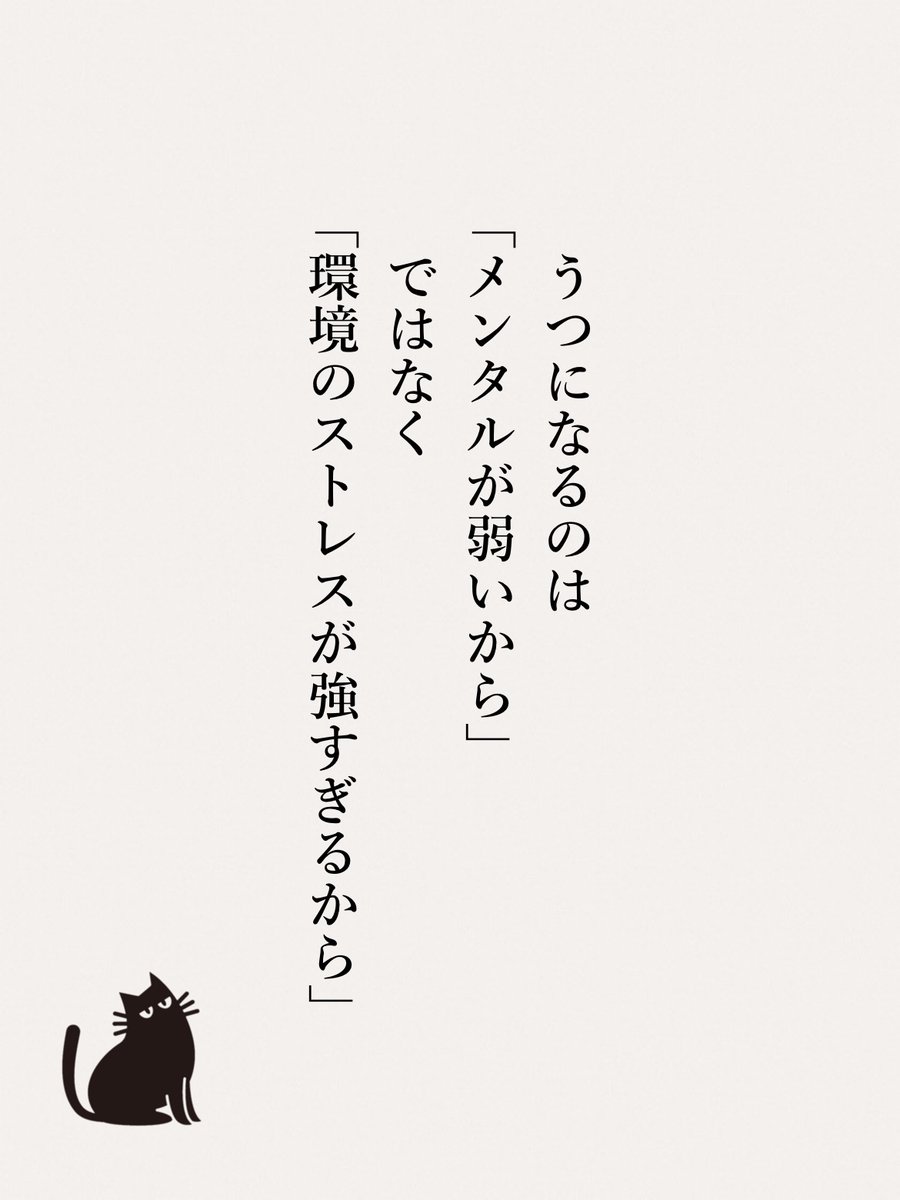 うつになるのは
「メンタルが弱いから」
ではなく
「環境のストレスが強すぎるから」